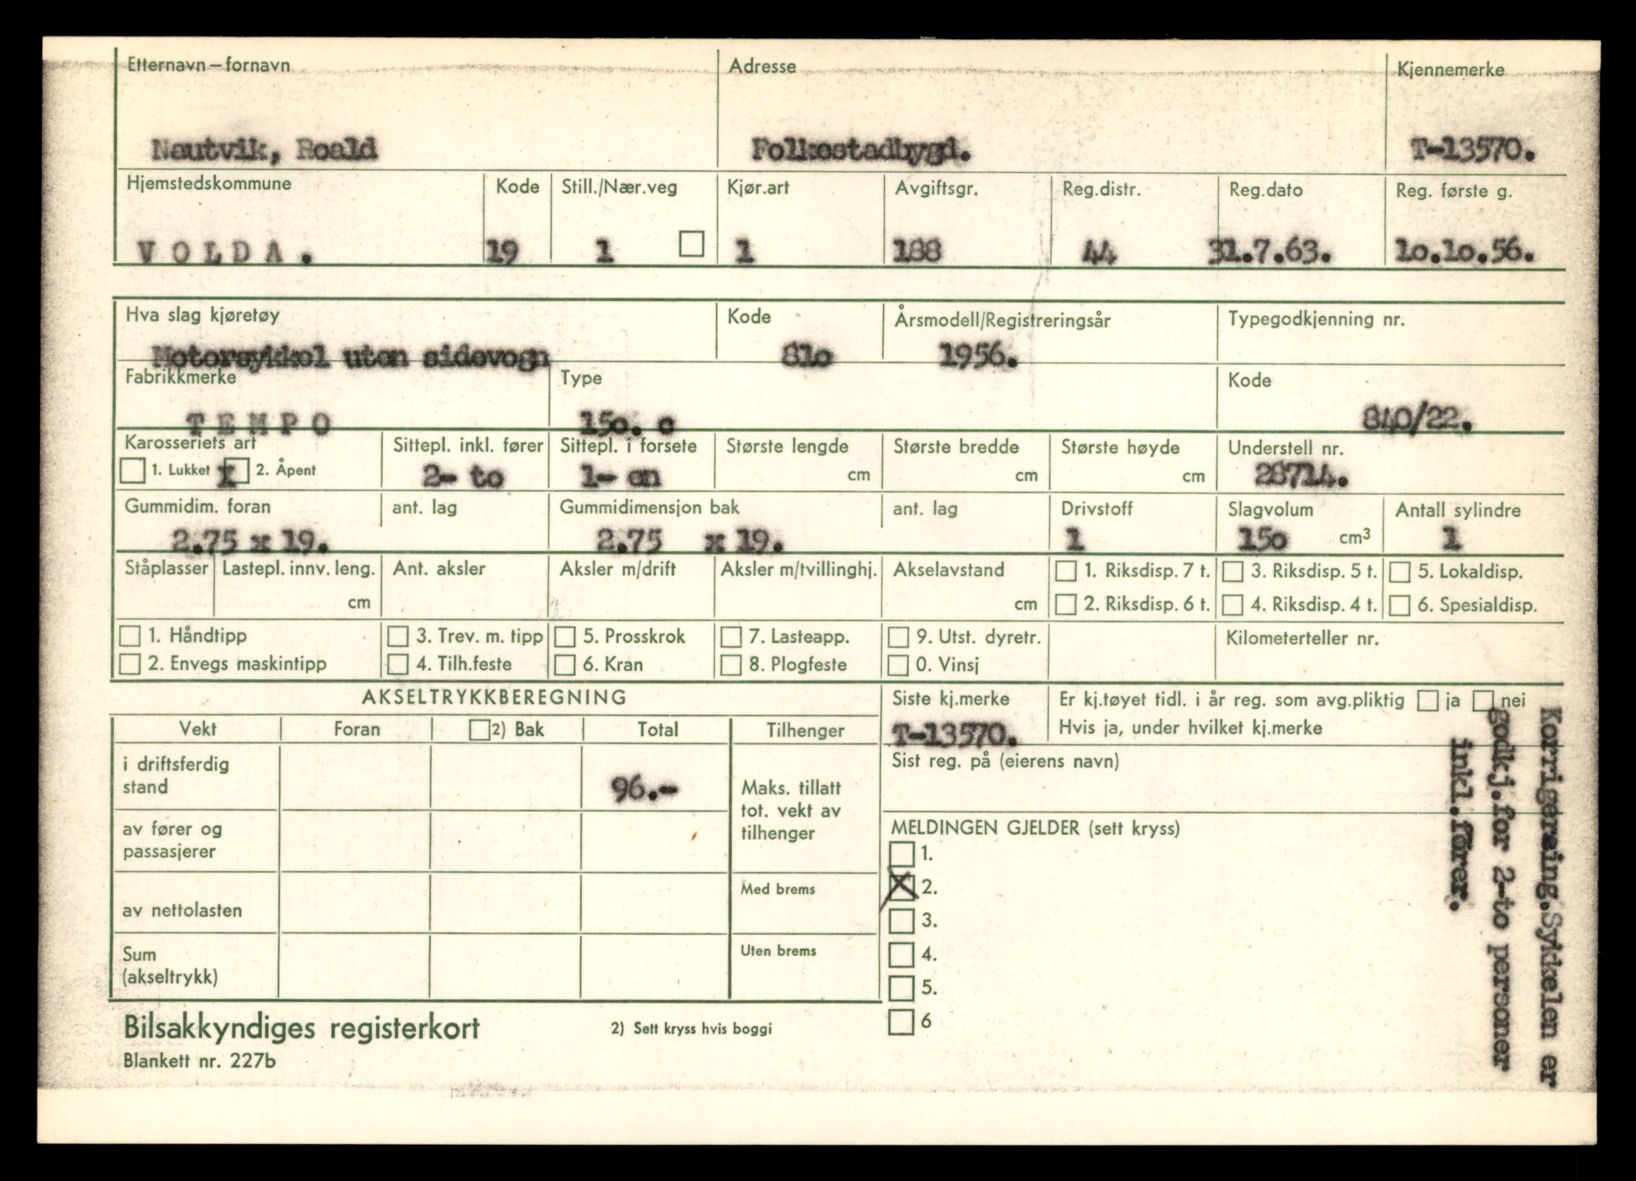 Etternavn – fornavn Adresse Kjennemerke
Nautvik, Roald Folkestadbygd. T-13570.
Hjemstedskommune Kode Still./Nær.veg Kjør.art Avgiftsgr. Reg.distr. Reg.dato Reg. første g.
VOLDA. 19 1 1 188 44 31.7.63. 10.10.56.
Hva slag kjøretøy Kode Årsmodell/Registreringsår Typegodkjenning nr.
Motorsykkel uten sidevogn 81o 1956.
Fabrikkmerke Type Kode
TEMPO 15o. c 840/22.
Karosseriets art Sittepl. inkl. fører Sittepl. i forsete Største lengde Største bredde Største høyde Understell nr.
1. Lukket x 2. Åpent 2- to 1- en cm cm cm 28714.
Gummidim. foran ant. lag Gummidimensjon bak ant. lag Drivstoff Slagvolum Antall sylindre
2.75 x 19. 2.75 x 19. 1 15o cm3 1
Ståplasser Lastepl. innv. leng. Ant. aksler Aksler m/drift Aksler m/tvillinghj. Akselavstand 1. Riksdisp. 7 t. 3. Riksdisp. 5 t. 5. Lokaldisp.
cm cm 2. Riksdisp. 6 t. 4. Riksdisp. 4 t. 6. Spesialdisp.
1. Håndtipp 3. Trev. m. tipp 5. Prosskrok 7. Lasteapp. 9. Utst. dyretr. Kilometerteller nr.
2. Envegs maskintipp 4. Tilh.feste 6. Kran 8. Plogfeste 0. Vinsj
AKSELTRYKKBEREGNING Siste kj.merke Er kj.tøyet tidl. i år reg. som avg.pliktig ja nei
Vekt Foran 2) Bak Total Tilhenger T-13570. Hvis ja, under hvilket kj.merke
i driftsferdig stand 96.- Sist reg. på (eierens navn)
Maks. tillatt
tot. vekt av
tilhenger
av fører og
passasjerer
MELDINGEN GJELDER (sett kryss)
1.
Med brems X 2.
av nettolasten 3.
Sum Uten brems 4.
(akseltrykk) 5.
6
Bilsakkyndiges registerkort 2) Sett kryss hvis boggi
Blankett nr. 227b
Korrigereing.Sykkelen er
godkj.for 2-to personer
inkl.fører.